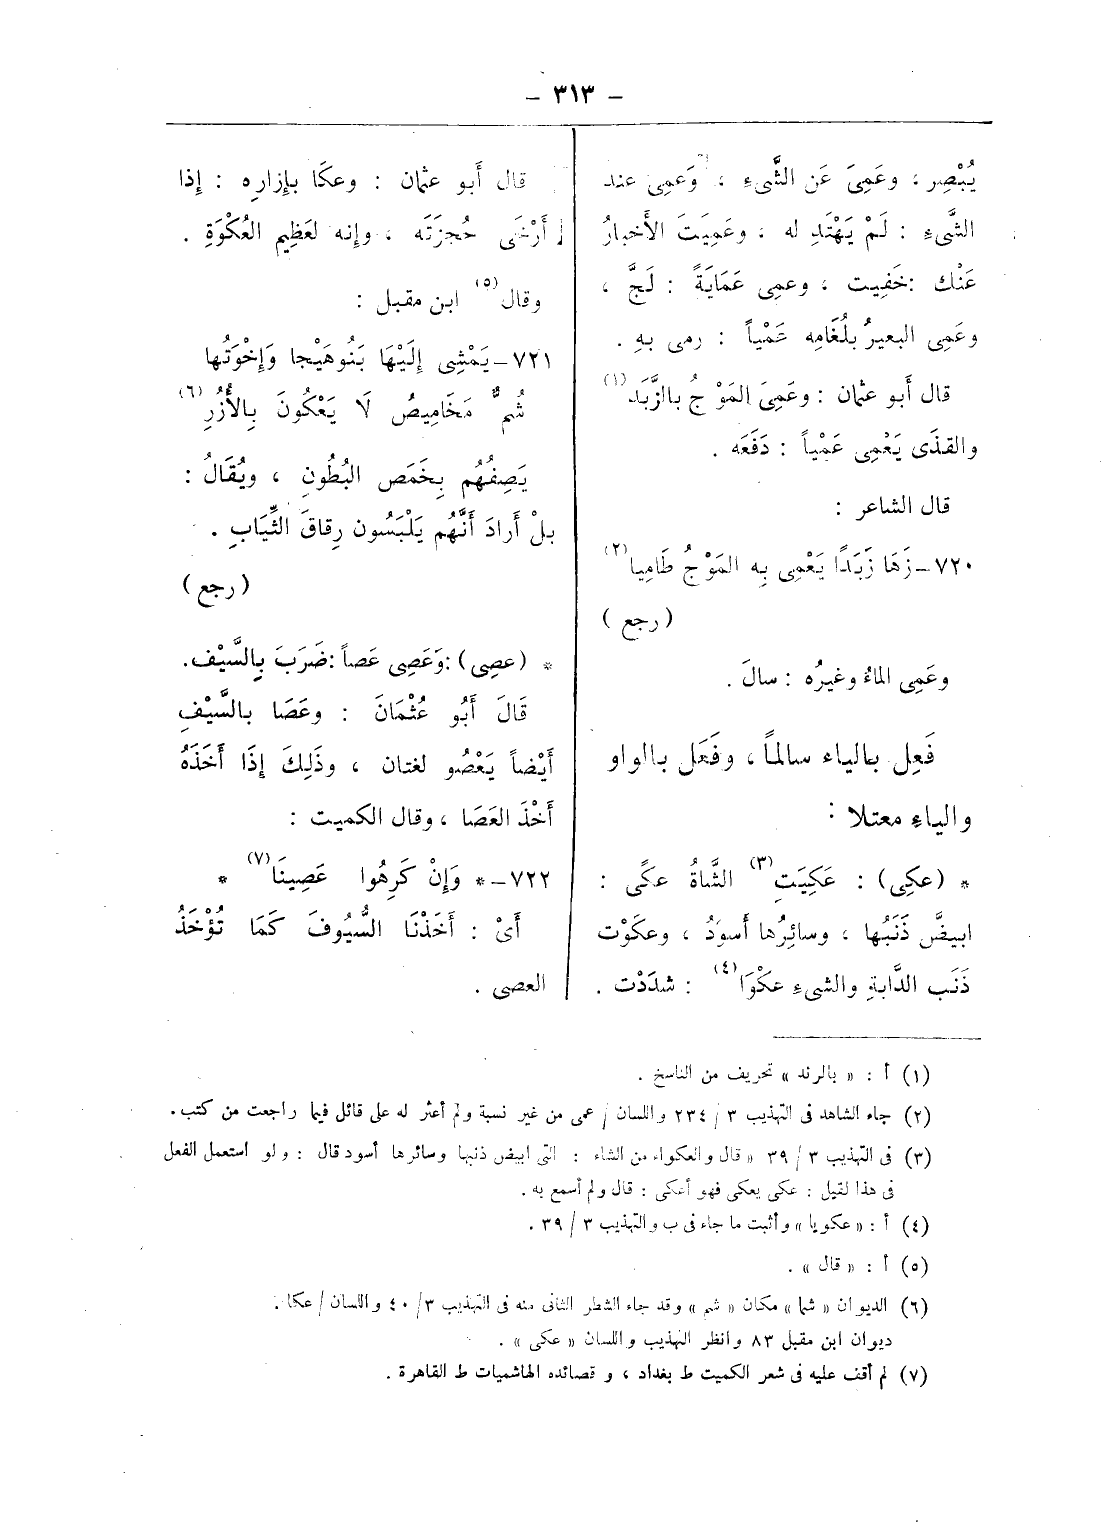 – ٣١٣ –
يُبْصِر ، وعَمِىَ عَن الشَّىءِ ، وَعمِى عند
الشَّىءِ : لَمْ يَهْتَدِ له ، وعَمِيَتَ الأَخبارُ
عَنْك : خَفِيت ، وعمِى عَمَايَةً : لَجَّ ،
وعَمِى البعيرُ بلُغَامِه عَمْياً : رمى بهِ .
قال أَبو عثمان : وعَمِىَ المَوْجُ بالزَّبَد(١)
والقذَى يَعْمِى عَمْياً : دَفَعَه .
قال الشاعر :
٧٢٠ – زَهَا زَبَدًا يَعْمِى بِه المَوْجُ طَامِيا(٢)
( رجع )
وعَمِى الماءُ وغيرُه : سالَ .
فَعِل بالياء سالماً ، وفَعَل بالواو
والياءِ معتلا :
* (عكِى) : عَكِيَتِ(٣) الشَّاةُ عكًى :
ابيضَّ ذَنَبُها ، وسائِرُها أَسوَدُ ، وعكَوْت
ذَنَب الدَّابةِ والشىءِ عكْوَا(٤) : شدَدْت .
قال أَبو عثمان : وعكَا بإِزارِه : إِذا
أَرْخَى حُجزَتَه ، وإنه لعَظِيم العُكْوَةِ .
وقال(٥) ابن مقبل :
٧٢١ – يَمْشِى إِلَيْهَا بَنُوهَيْجا وَإِخْوَتُها
شُمٌ مَخَامِيصُ لَا يَعْكُونَ بِالأُزُرِ(٦)
يَصِفُهُم بِخَمَص البُطُونِ ، ويُقَالُ :
بلْ أَرادَ أَنَّهُم يَلْبَسُون رِقاقَ الثِّيَابِ .
( رجع )
* (عصِى) : وَعَصِى عَصاً : ضَرَبَ بِالسَّيْف .
قَالَ أَبُو عُثْمَانَ : وعَصَا بالسَّيْفِ
أَيْضاً يَعْصُو لغتان ، وذَلِكَ إِذَا أَخَذَهُ
أَخْذَ العَصَا ، وقال الكميت :
٧٢٢ – * وَإِنْ كَرِهُوا عَصِينَا(٧) *
أَىْ : أَخَذْنَا السُّيُوفَ كَمَا تُؤْخَذُ
العصى .
(١) أ : « بالرند » تحريف من الناسخ .
(٢) جاء الشاهد فى التهذيب ٣ / ٢٣٤ واللسان / عمى من غير نسبة ولم أعثر له على قائل فيما راجعت من كتب .
(٣) فى التهذيب ٣ / ٣٩ « قال والعكواء من الشاء : التى ابيض ذنبها وسائرها أسود قال : ولو استعمل الفعل
فى هذا لقيل : عكى يعكى فهو أعكى : قال ولم أسمع به .
(٤) أ : « عكويا » وأثبت ما جاء فى ب والتهذيب ٣ / ٣٩ .
(٥) أ : « قال » .
(٦) الديوان « شما » مكان « شم » وقد جاء الشطر الثانى منه فى التهذيب ٣ / ٤٠ واللسان / عكا .
ديوان ابن مقبل ٨٣ وانظر التهذيب واللسان « عكى » .
(٧) لم أقف عليه فى شعر الكميت ط بغداد ، و قصائده الهاشميات ط القاهرة .